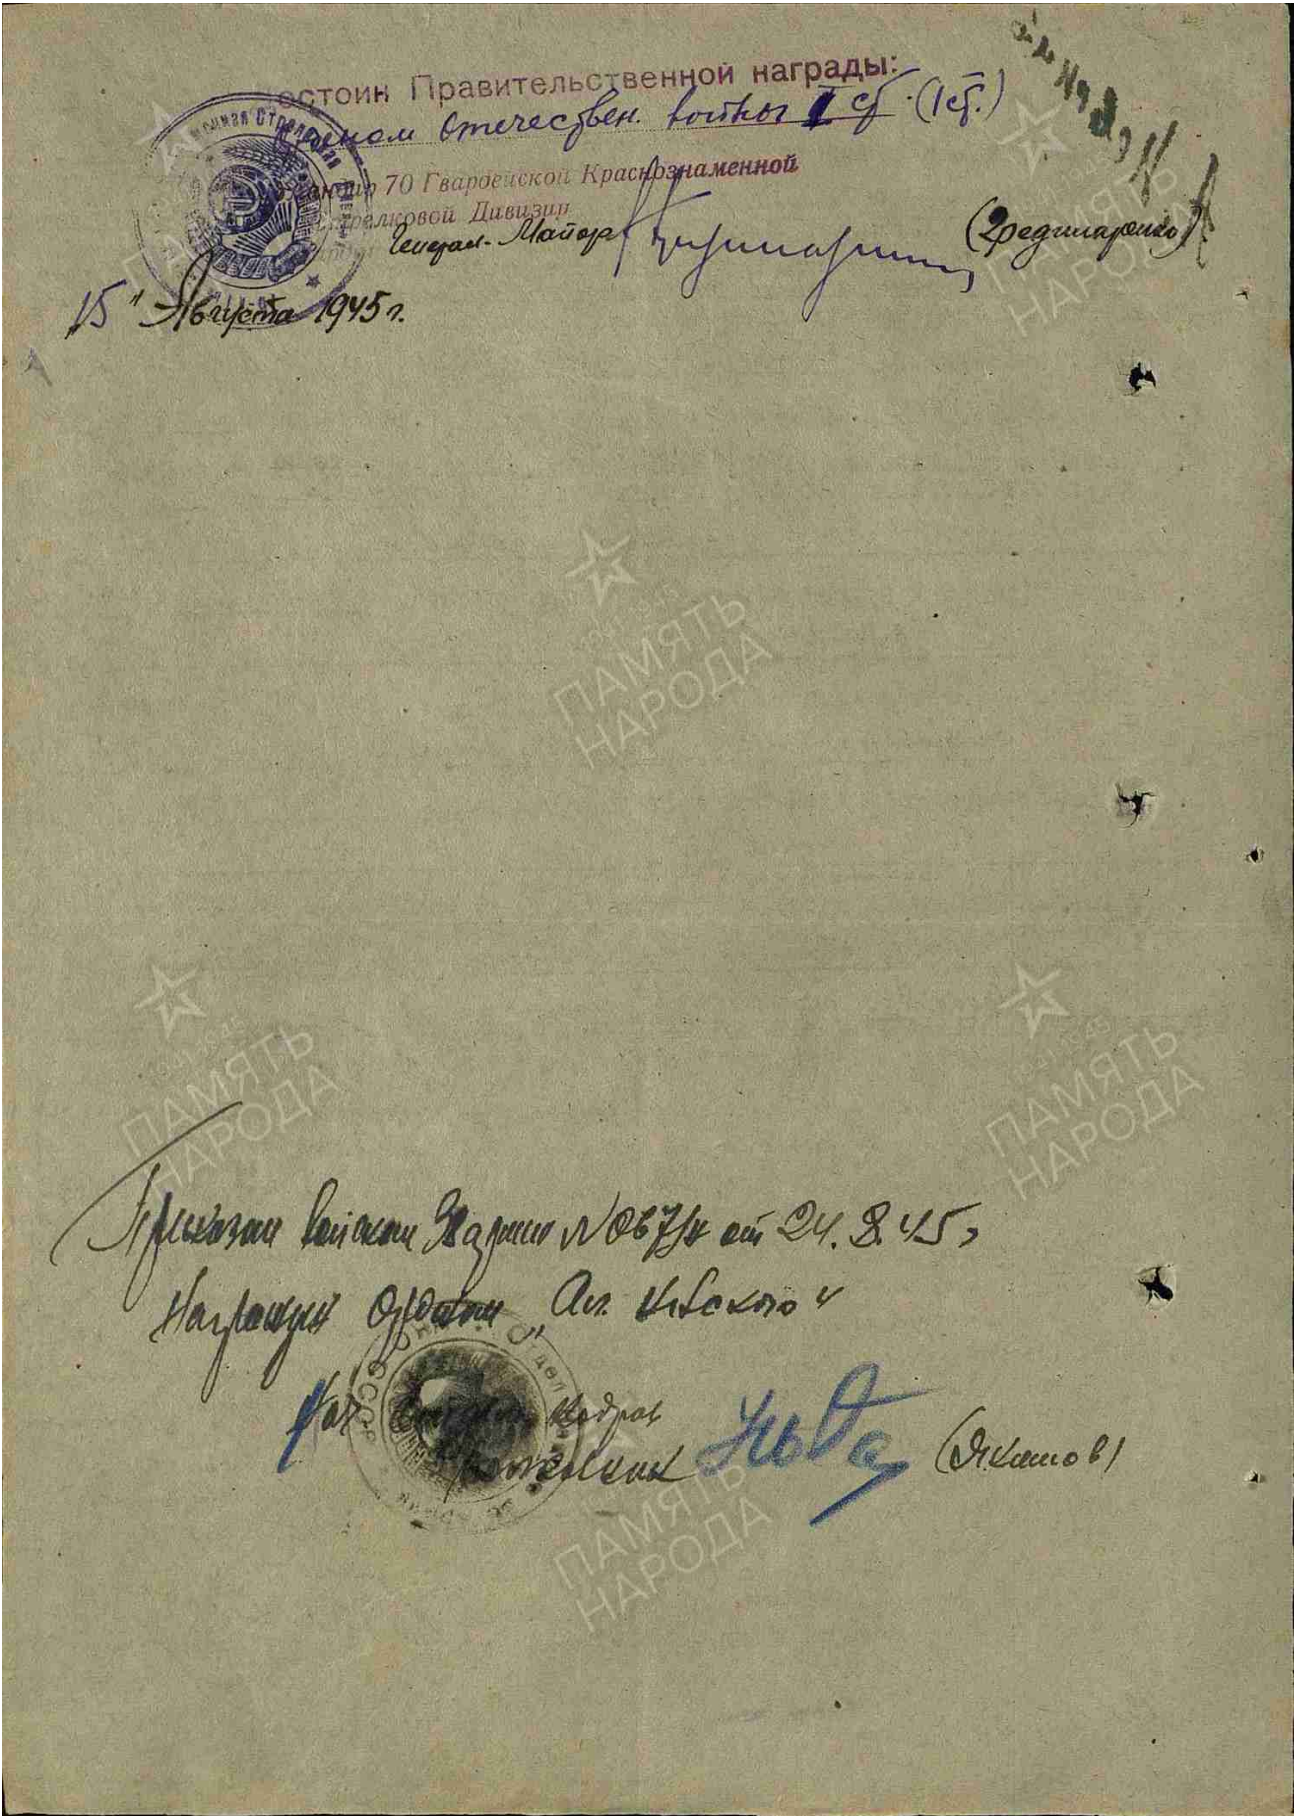 остоин Правительственной награды:
орденом Отечествен. войны I ст. (I ст.)
70 Гвардейской Краснознаменной
Стрелковой Дивизии
Генерал-Майор (Гредпинаренко)
"15" Августа 1945 г.
Приказом войскам 38 армии N 067/н от 24.8.45 г
Награжден Орденом "Ал. Невского"
Нач Отдела Кадров
(Якимов)
ПАМЯТЬ
НАРОДА